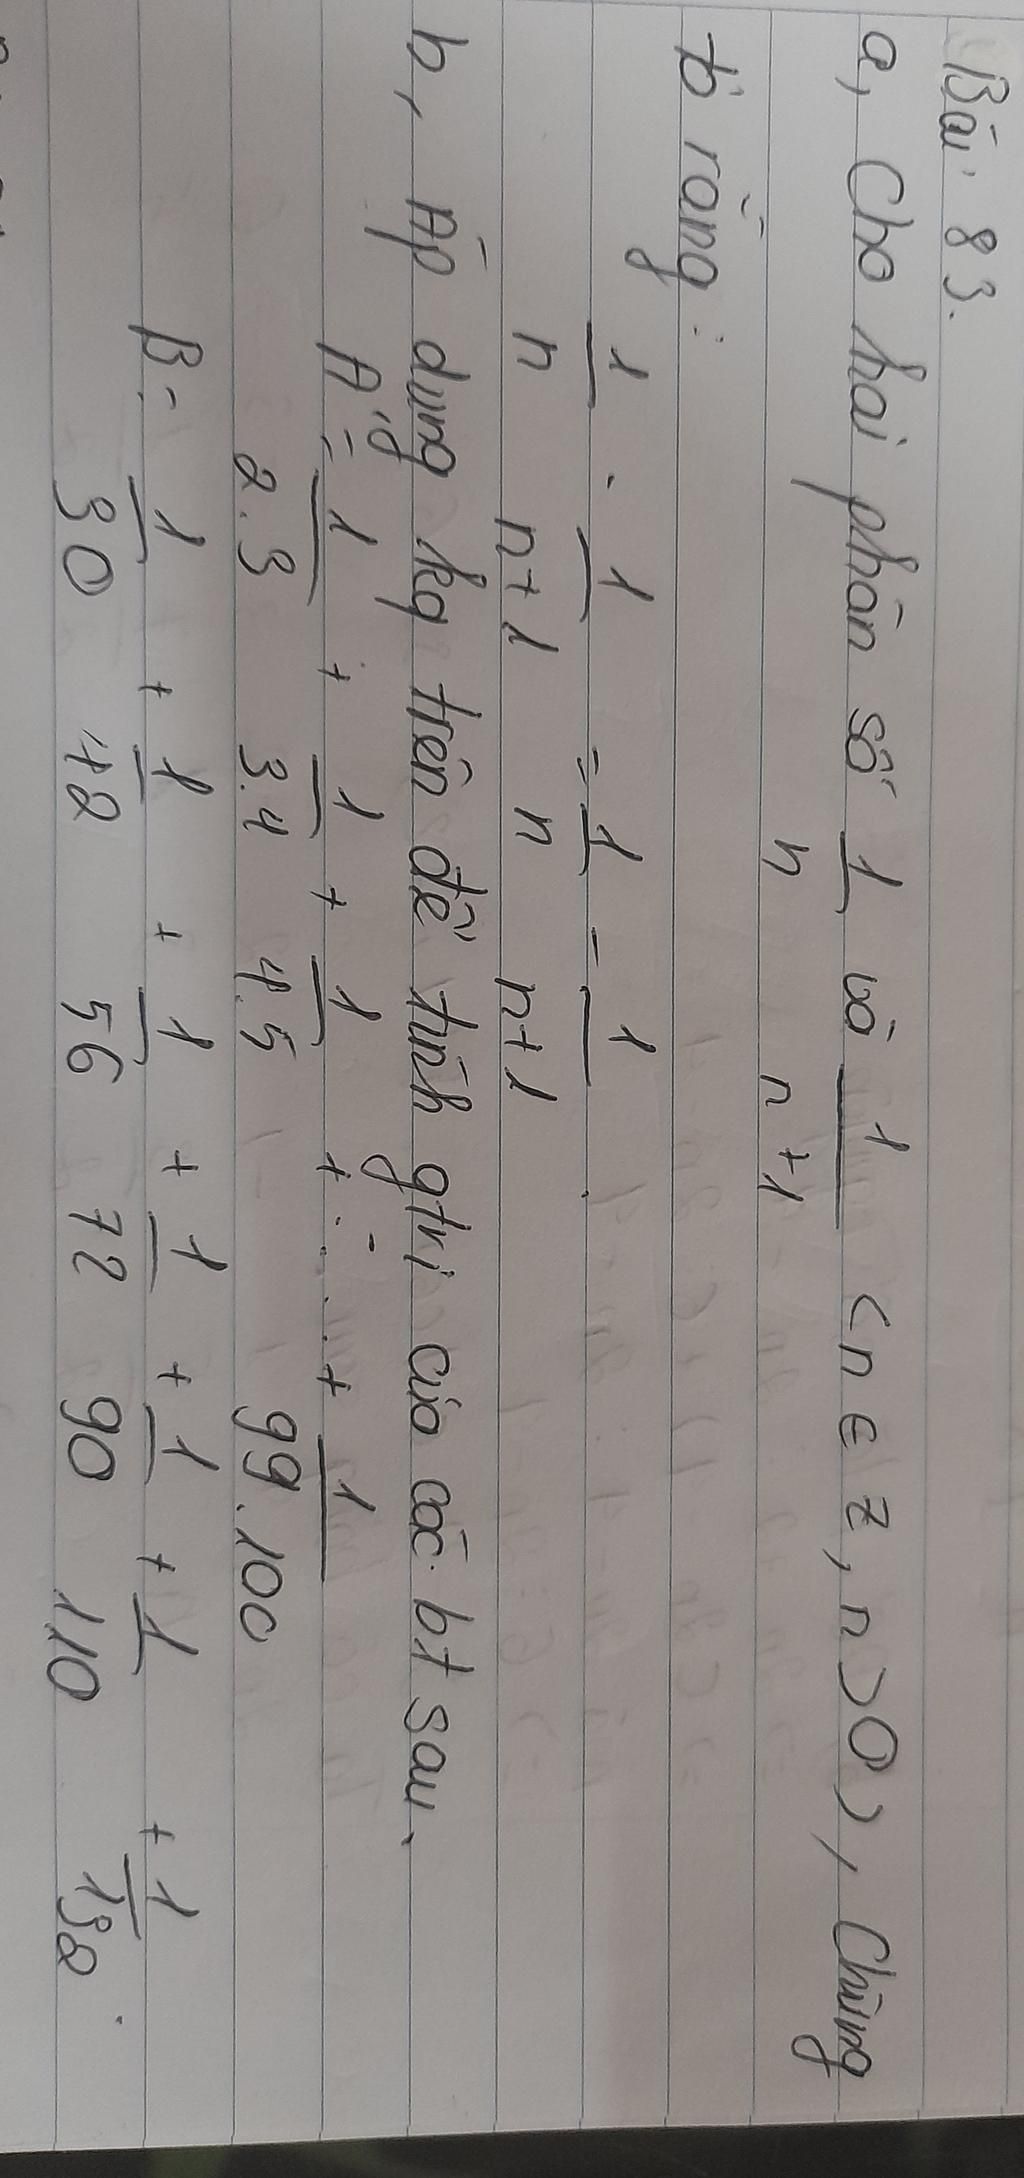 Bài 83.
a, Cho hai phân số 1/n và 1/n+1 <n ∈ z, n>0), Chứng
tỏ rằng:
1/n . 1/n+1 = 1/n - 1/n+1
b, Áp dụng kq trên để tính gtrị của các bt sau.
A = 1/2.3 + 1/3.4 + 1/4.5 + ..... + 1/99.100
B = 1/30 + 1/42 + 1/56 + 1/72 + 1/90 + 1/110 + 1/132.